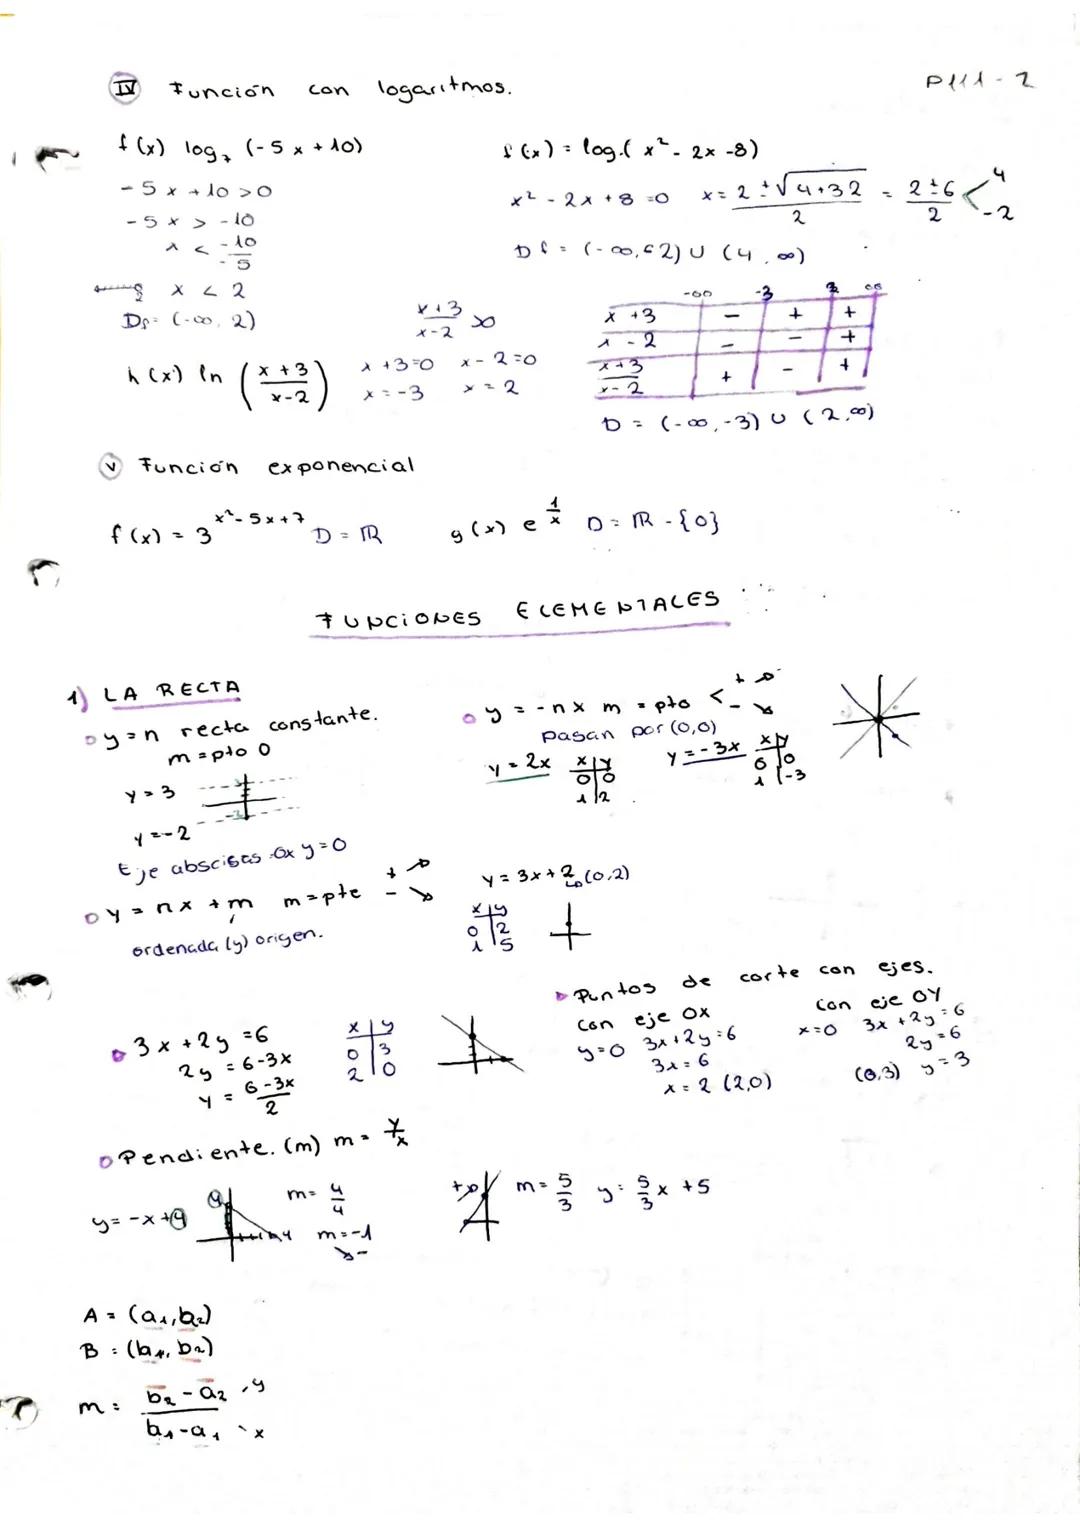 IV Función con logaritmos.
P111-2
f(x) log₇ (-5x+10)
-5x+10>0
-5x > -10
x < -10/-5
x < 2
Df= (-∞, 2)
f(x) = log.( x² - 2x -8)
x² - 2x + 8 =0   x= 2 ± √4+32 / 2 = 2±6 / 2 < 4 -2
Df = (-∞,-2) ∪ (4,∞)
h(x) ln (x+3 / x-2)
x+3 / x-2 >0
x+3=0   x-2=0
x=-3   x=2
-∞ -3 2 ∞
x+3 - + +
x-2 - - +
x+3 / x-2 + - +
D = (-∞,-3) ∪ (2,∞)
V Función exponencial
f(x) = 3^(x²-5x+7) D = ℝ   g(x) e^(1/x) D = ℝ - {0}
FUNCIONES ELEMENTALES
1) LA RECTA
y=n recta constante.
m=pto 0
y=3
y=-2
Eje abscisas Ox y=0
y = -nx m = pto < + -
pasan por (0,0)
y=2x
x y
0 0
1 2
y=-3x
x y
0 0
1 -3
y = nx + m   m=pte + -
ordenada (y) origen.
y = 3x+2 (0,2)
x y
0 2
1 5
3x+2y=6
2y = 6-3x
y = 6-3x / 2
x y
0 3
2 0
Puntos de corte con ejes.
Con eje OX
y=0 3x+2y=6
3x=6
x=2 (2,0)
Con eje OY
x=0 3x+2y=6
2y=6
(0,3) y=3
Pendiente. (m) m= y/x
y= -x+4
4
4
m= 4/4
m=-1
-
+
m= 5/3 y: 5/3 x +5
A = (a₁,a₂)
B : (b₁, b₂)
m: b₂-a₂ / b₁-a₁ y x